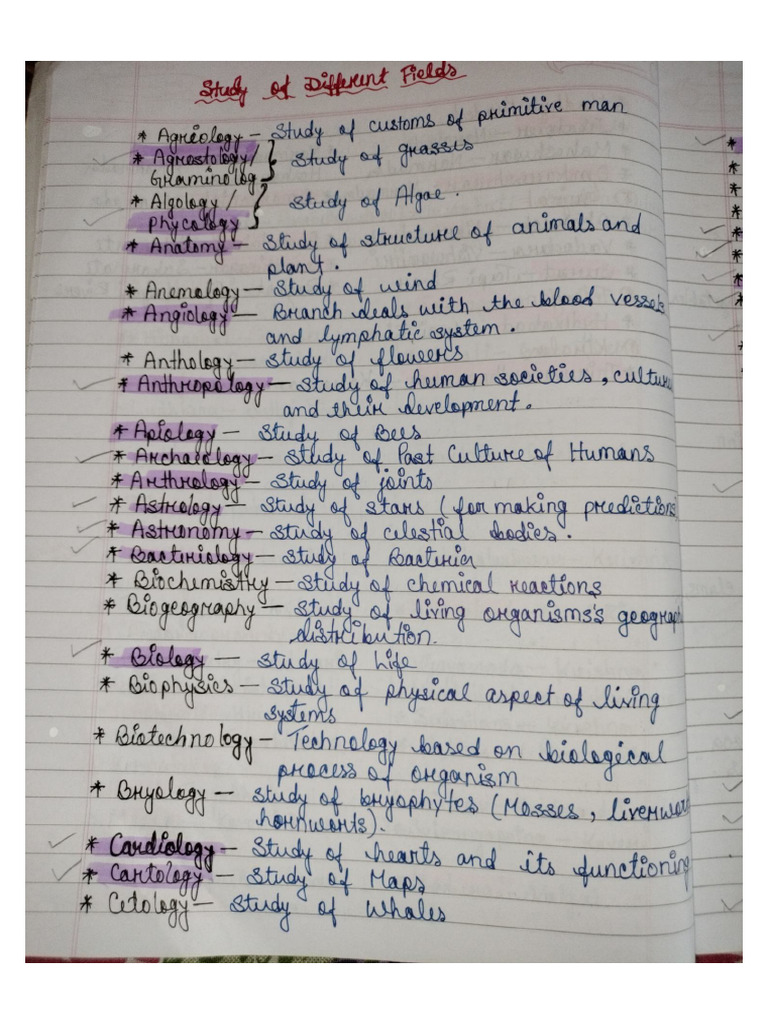 Study of Different Fields
* Agriology - Study of customs of primitive man
* Agrostology/
Graminolog } Study of grasses
* Algology /
Phycology } Study of Algae.
* Anatomy - Study of structure of animals and
plant.
* Anemology - Study of wind
* Angiology - Branch deals with the blood vessels
and lymphatic system.
* Anthology - Study of flowers
* Anthropology - Study of human societies, culture
and their development.
* Apiology - Study of Bees
* Archaeology - Study of Past Culture of Humans
* Arthrology - Study of joints
* Astrology - Study of stars (for making predictions)
* Astronomy - Study of celestial bodies.
* Bacteriology - Study of Bacteria
* Biochemistry - Study of chemical reactions
* Biogeography - Study of living organisms's geograph
distribution.
* Biology - Study of Life
* Biophysics - Study of physical aspect of living
systems
* Biotechnology - Technology based on biological
process of organism
* Bryology - Study of bryophytes (Mosses, liverwor
hornworts).
* Cardiology - Study of hearts and its functioning
* Cartology - Study of Maps
* Cetology - Study of Whales